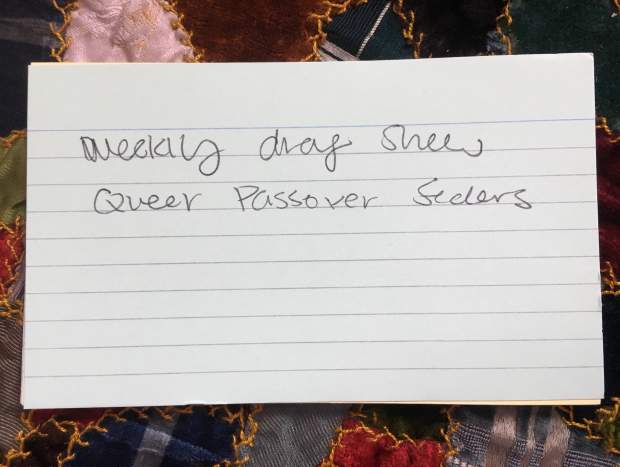 Weekly drag show
Queer Passover Seders